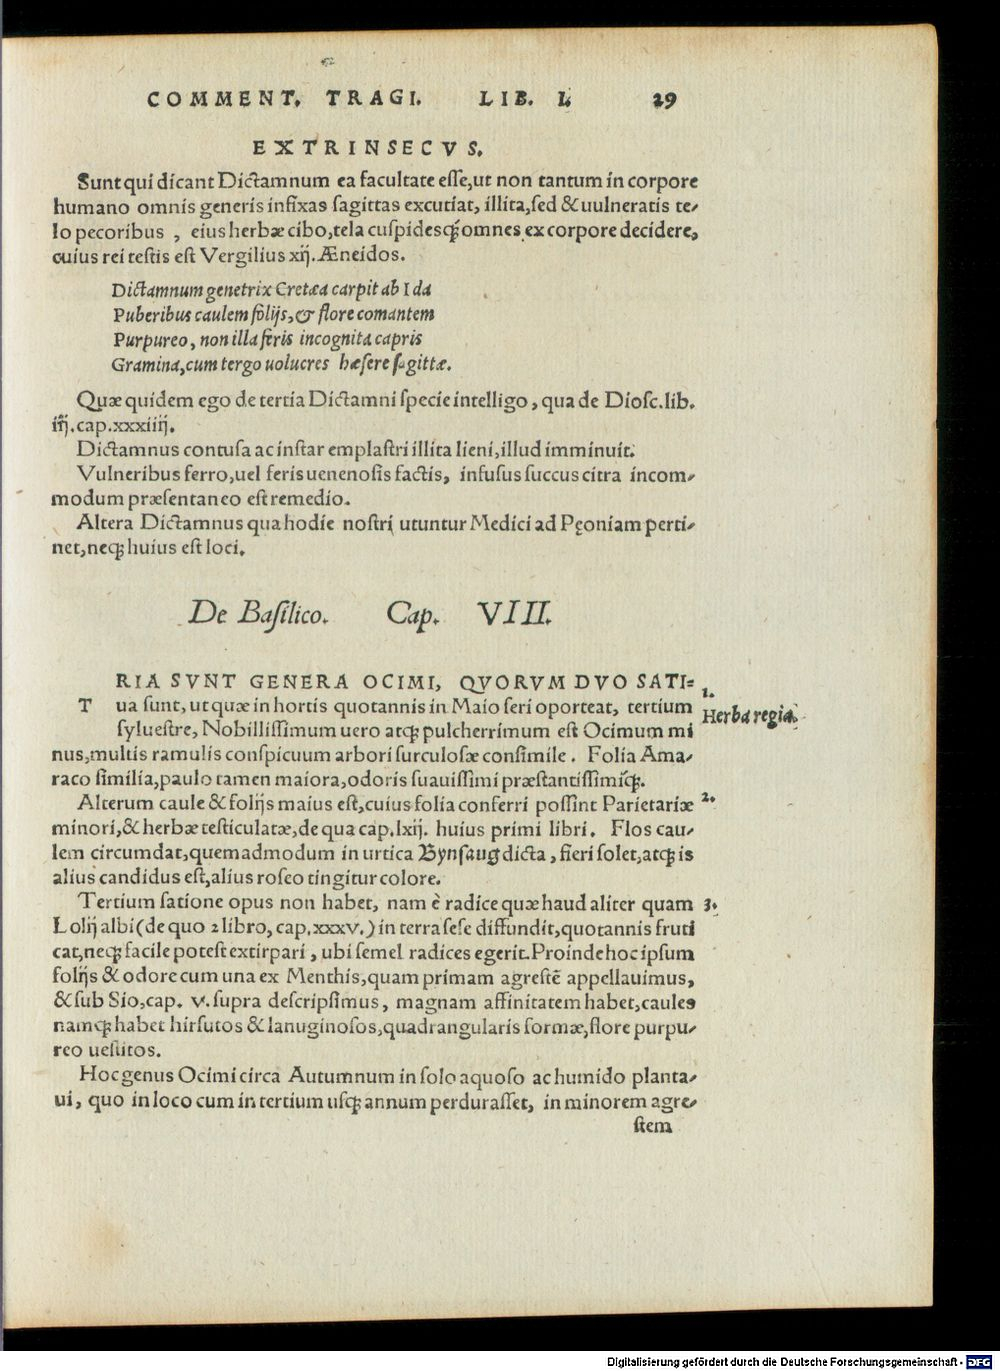 COMMENT. TRAGI. LIB. I. 29
EXTRINSECVS.
Sunt qui dicant Dictamnum ea facultate esse, ut non tantum in corpore
humano omnis generis infixas sagittas excutiat, illita, sed & uulneratis te-
lo pecoribus, eius herbæ cibo, tela cuspidesq́ꝫ omnes ex corpore decidere,
cuius rei testis est Vergilius xij. Æneidos.
Dictamnum genetrix Cretæa carpit ab Ida
Puberibus caulem folijs, & flore comantem
Purpureo, non illa feris incognita capris
Gramina, cum tergo uolucres hæsere sagittæ.
Quæ quidem ego de tertia Dictamni specie intelligo, qua de Diosc. lib.
iij. cap. xxxiiij.
Dictamnus contusa ac instar emplastri illita lieni, illud imminuit.
Vulneribus ferro, uel feris uenenosis factis, infusus succus citra incom-
modum præsentaneo est remedio.
Altera Dictamnus qua hodie nostri utuntur Medici ad Pęoniam perti-
net, neqꝫ huius est loci.
De Basilico. Cap. VIII.
TRIA SVNT GENERA OCIMI, QVORVM DVO SATI=
ua sunt, ut quæ in hortis quotannis in Maio seri oporteat, tertium
syluestre, Nobillissimum uero atqꝫ pulcherrimum est Ocimum mi
nus, multis ramulis conspicuum arbori surculosæ consimile. Folia Ama-
raco similia, paulo tamen maiora, odoris suauissimi præstantissimiq́ꝫ.
1.
Herba regia.
Alterum caule & folijs maius est, cuius folia conferri possint Parietariæ
minori, & herbæ testiculatæ, de qua cap. lxij. huius primi libri. Flos cau-
lem circumdat, quemadmodum in urtica Bynsaug dicta, fieri solet, atqꝫ is
alius candidus est, alius roseo tingitur colore.
2.
Tertium satione opus non habet, nam è radice quæ haud aliter quam
Lolij albi (de quo 2 libro, cap. xxxv.) in terra sese diffundit, quotannis fruti
cat, neqꝫ facile potest extirpari, ubi semel radices egerit. Proinde hoc ipsum
folijs & odore cum una ex Menthis, quam primam agrestē appellauimus,
& sub Sio, cap. v. supra descripsimus, magnam affinitatem habet, caules
namqꝫ habet hirsutos & lanuginosos, quadrangularis formæ, flore purpu-
reo uestitos.
3.
Hoc genus Ocimi circa Autumnum in solo aquoso ac humido planta-
ui, quo in loco cum in tertium usqꝫ annum perdurasset, in minorem agre-
stem
Digitalisierung gefördert durch die Deutsche Forschungsgemeinschaft - DFG